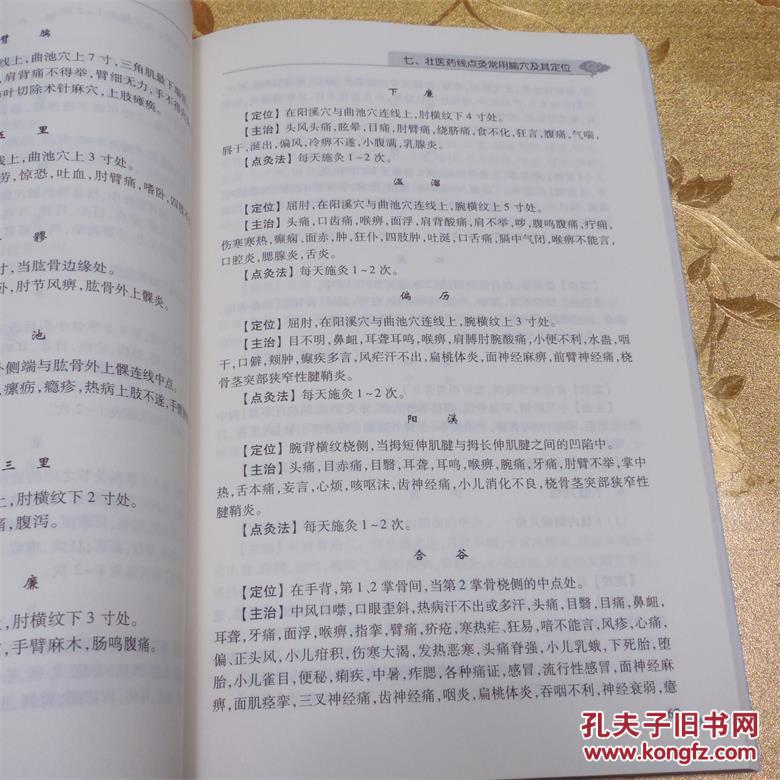 臂 臑
线上,曲池穴上7寸,三角肌最下端
肩背痛不得举,臂细无力,手不得向
叶切除术针麻穴,上肢瘫痪。
五 里
线上,曲池穴上3寸处。
劳,惊恐,吐血,肘臂痛,嗜卧,四肢
髎
寸,当肱骨边缘处。
卧,肘节风痹,肱骨外上髁炎。
池
外侧端与肱骨外上髁连线中点。
,瘰疬,瘾疹,热病上肢不遂,手臂
三 里
上,肘横纹下2寸处。
痛,腹泻。
廉
,肘横纹下3寸处。
,手臂麻木,肠鸣腹痛。
七、壮医药线点灸常用腧穴及其定位
下 廉
【定位】在阳溪穴与曲池穴连线上,肘横纹下4寸处。
【主治】头风头痛,眩晕,目痛,肘臂痛,绕脐痛,食不化,狂言,腹痛,气喘,
唇干,涎出,偏风,冷痹不遂,小腹满,乳腺炎。
【点灸法】每天施灸1~2次。
温 溜
【定位】屈肘,在阳溪穴与曲池穴连线上,腕横纹上5寸处。
【主治】头痛,口齿痛,喉痹,面浮,肩背酸痛,肩不举,哕,腹鸣腹痛,疔疮,
伤寒寒热,癫痫、面赤,肿,狂仆,四肢肿,吐涎,口舌痛,膈中气闭,喉痹不能言,
口腔炎,腮腺炎,舌炎。
【点灸法】每天施灸1~2次。
偏 历
【定位】屈肘,在阳溪穴与曲池穴连线上,腕横纹上3寸处。
【主治】目不明,鼻衄,耳聋耳鸣,喉痹,肩膊肘腕酸痛,小便不利,水蛊,咽
干,口僻,颊肿,癫疾多言,风疟汗不出,扁桃体炎,面神经麻痹,前臂神经痛,桡
骨茎突部狭窄性腱鞘炎。
【点灸法】每天施灸1~2次。
阳 溪
【定位】腕背横纹桡侧,当拇短伸肌腱与拇长伸肌腱之间的凹陷中。
【主治】头痛,目赤痛,目翳,耳聋,耳鸣,喉痹,腕痛,牙痛,肘臂不举,掌中
热,舌本痛,妄言,心烦,咳呕沫,齿神经痛,小儿消化不良,桡骨茎突部狭窄性
腱鞘炎。
【点灸法】每天施灸1~2次。
合 谷
【定位】在手背,第1、2掌骨间,当第2掌骨桡侧的中点处。
【主治】中风口噤,口眼歪斜,热病汗不出或多汗,头痛,目翳,目痛,鼻衄,
耳聋,牙痛,面浮,喉痹,指挛,臂痛,疥疮,寒热疟,狂易,喑不能言,风疹,心痛,
偏、正头风,小儿疳积,伤寒大渴,发热恶寒,头痛脊强,小儿乳蛾,下死胎,堕
胎,小儿雀目,便秘,痢疾,中暑,痄腮,各种痛证,感冒,流行性感冒,面神经麻
痹,面肌痉挛,三叉神经痛,齿神经痛,咽炎,扁桃体炎,吞咽不利,神经衰弱,癔
孔夫子旧书网
www.kongfz.com